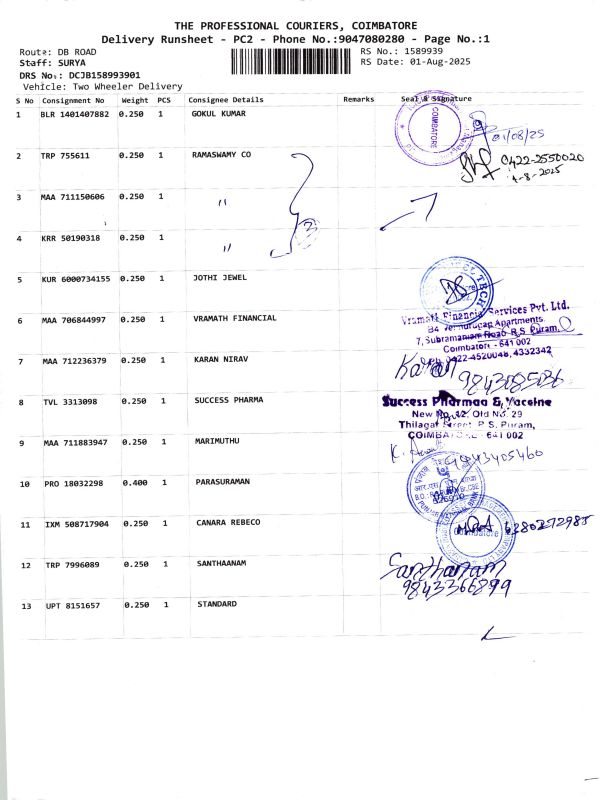 THE PROFESSIONAL COURIERS, COIMBATORE
Delivery Runsheet - PC2 - Phone No.:9047080280 - Page No.:1
Route: DB ROAD
RS No.: 1589939
Staff: SURYA
RS Date: 01-Aug-2025
DRS No: DCJB158993901
Vehicle: Two Wheeler Delivery
S No Consignment No Weight PCS Consignee Details Remarks Seal & Signature
1 BLR 1401407882 0.250 1 GOKUL KUMAR
COIMBATORE
01/08/25
2 TRP 755611 0.250 1 RAMASWAMY CO
0422-2550020
1-8-2025
3 MAA 711150606 0.250 1 "
4 KRR 50190318 0.250 1 "
3
5 KUR 6000734155 0.250 1 JOTHI JEWEL
TECH
6 MAA 706844997 0.250 1 VRAMATH FINANCIAL
Vramath Financial Services Pvt. Ltd.
B4 Apartments,
7, Subramaniam Road R.S. Puram,
Coimbatore - 641 002
Ph. 0422-4520048, 4332342
7 MAA 712236379 0.250 1 KARAN NIRAV
Karan
9843085036
8 TVL 3313098 0.250 1 SUCCESS PHARMA
Success Pharmaa & Vaccine
New No. 12, Old No. 29
Thilagar Street, R.S. Puram,
COIMBATORE - 641 002
9 MAA 711883947 0.250 1 MARIMUTHU
K.
9843405460
10 PRO 18032298 0.400 1 PARASURAMAN
11 IXM 508717904 0.250 1 CANARA REBECO
6380272985
Coimbatore
12 TRP 7996089 0.250 1 SANTHAANAM
Santhanam
9843366899
13 UPT 8151657 0.250 1 STANDARD